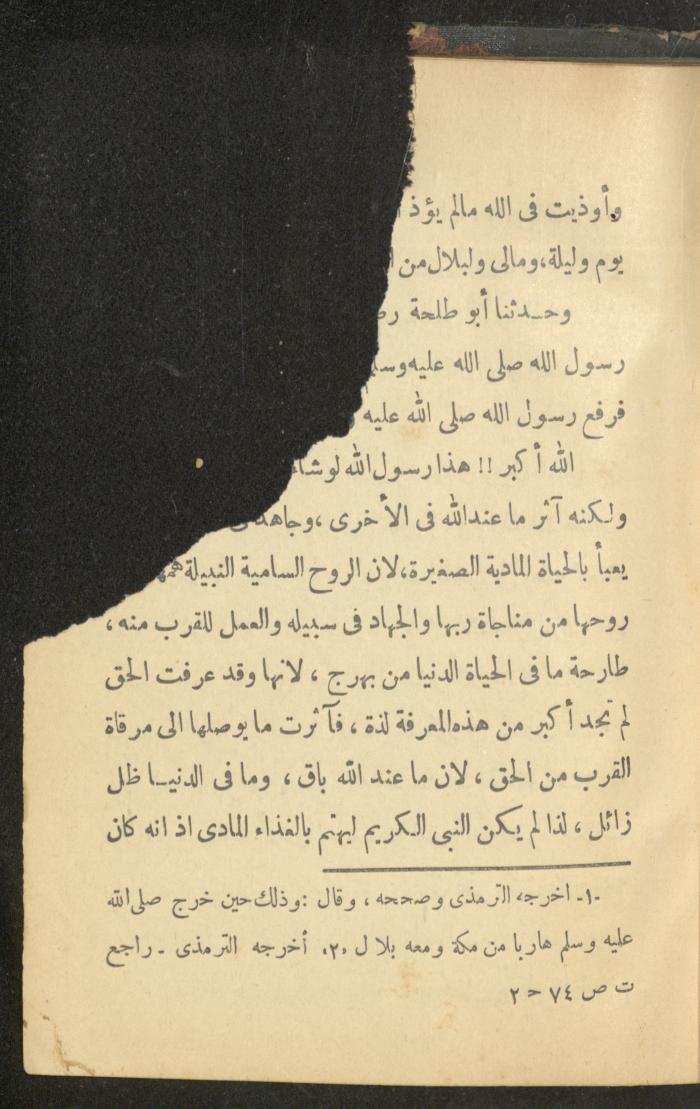 وأوذيت فى الله مالم يؤذ
يوم وليلة، ومالى ولبلال من
وحدثنا أبو طلحة
رسول الله صلى الله عليه وسلم
فرفع رسول الله صلى الله عليه
الله أكبر !! هذا رسول الله لو شاء
ولكنه آثر ما عند الله فى الأخرى ، وجاهد
يعبأ بالحياة المادية الصغيرة، لان الروح السامية النبيلة همها
روحها من مناجاة ربها والجهاد فى سبيله والعمل للقرب منه ،
طارحة ما فى الحياة الدنيا من بهرج ، لانها وقد عرفت الحق
لم تجد أكبر من هذه المعرفة لذة ، فآثرت ما يوصلها الى مرقاة
القرب من الحق ، لان ما عند الله باق ، وما فى الدنيا ظل
زائل ، لذا لم يكن النبى الكريم ليهتم بالغذاء المادى اذ انه كان
-١- اخرجه الترمذى وصححه ، وقال : وذلك حين خرج صلى الله
عليه وسلم هاربا من مكة ومعه بلال «٢» أخرجه الترمذى - راجع
ت ص ٧٤ ح ٢